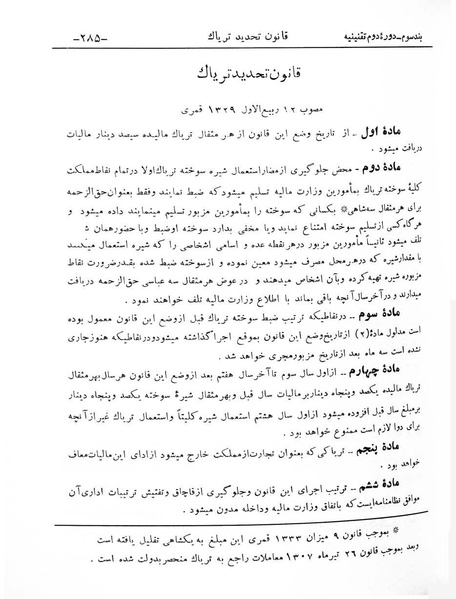 بند سوم ــ دورهٔ دوم تقنینیه
قانون تحدید تریاك
ــ٢٨٥ــ
قانون تحدید تریاك
مصوب ١٢ ربیع‌الاول ١٣٢٩ قمری
مادهٔ اول ــ از تاریخ وضع این قانون از هر مثقال تریاك مالیده سیصد دینار مالیات
دریافت میشود .
مادهٔ دوم ــ محض جلوگیری از مضار استعمال شیره سوخته تریاك اولا در تمام نقاط مملکت
کلیهٔ سوخته تریاك بمأمورین وزارت مالیه تسلیم میشود که ضبط نمایند و فقط بعنوان حق‌الزحمه
برای هر مثقال سه‌شاهی* بکسانی که سوخته را بمأمورین مزبور تسلیم مینمایند داده میشود و
هرگاه کسی از تسلیم سوخته امتناع نماید و یا مخفی بدارد سوخته او ضبط و با حضور همان ش
تلف میشود ثانیاً مأمورین مزبور در هر نقطه عده و اسامی اشخاصی را که شیره استعمال میکنند
با مقدار شیره که در هر محل مصرف میشود معین نموده و از سوخته ضبط شده بقدر ضرورت نقاط
مزبوره شیره تهیه کرده و بآن اشخاص میدهند و در عوض هر مثقال سه عباسی حق‌الزحمه دریافت
میدارند و در آخر سال آنچه باقی بماند با اطلاع وزارت مالیه تلف خواهند نمود .
مادهٔ سوم ــ در نقاطیکه ترتیب ضبط سوخته تریاك قبل از وضع این قانون معمول بوده
است مدلول مادهٔ (٢) از تاریخ وضع این قانون بموقع اجرا گذاشته میشود و در نقاطیکه هنوز جاری
نشده است سه ماه بعد از تاریخ مزبور مجری خواهد شد .
مادهٔ چهارم ــ از اول سال سوم تا آخر سال هفتم بعد از وضع این قانون هر سال بهر مثقال
تریاك مالیده یکصد و پنجاه دینار بر مالیات سال قبل و بهر مثقال شیرهٔ سوخته یکصد و پنجاه دینار
بر مبلغ سال قبل افزوده میشود از اول سال هشتم استعمال شیره کلیتاً و استعمال تریاك غیر از آنچه
برای دوا لازم است ممنوع خواهد بود .
مادهٔ پنجم ــ تریاکی که بعنوان تجارت از مملکت خارج میشود از ادای این مالیات معاف
خواهد بود .
مادهٔ ششم ــ ترتیب اجرای این قانون و جلوگیری از قاچاق و تفتیش ترتیبات اداری آن
موافق نظامنامه‌ایست که باتفاق وزارت مالیه و داخله مدون میشود .
* بموجب قانون ٩ میزان ١٣٣٣ قمری این مبلغ به یکشاهی تقلیل یافته است
و بعد بموجب قانون ٢٦ تیرماه ١٣٠٧ معاملات راجع به تریاك منحصر بدولت شده است .